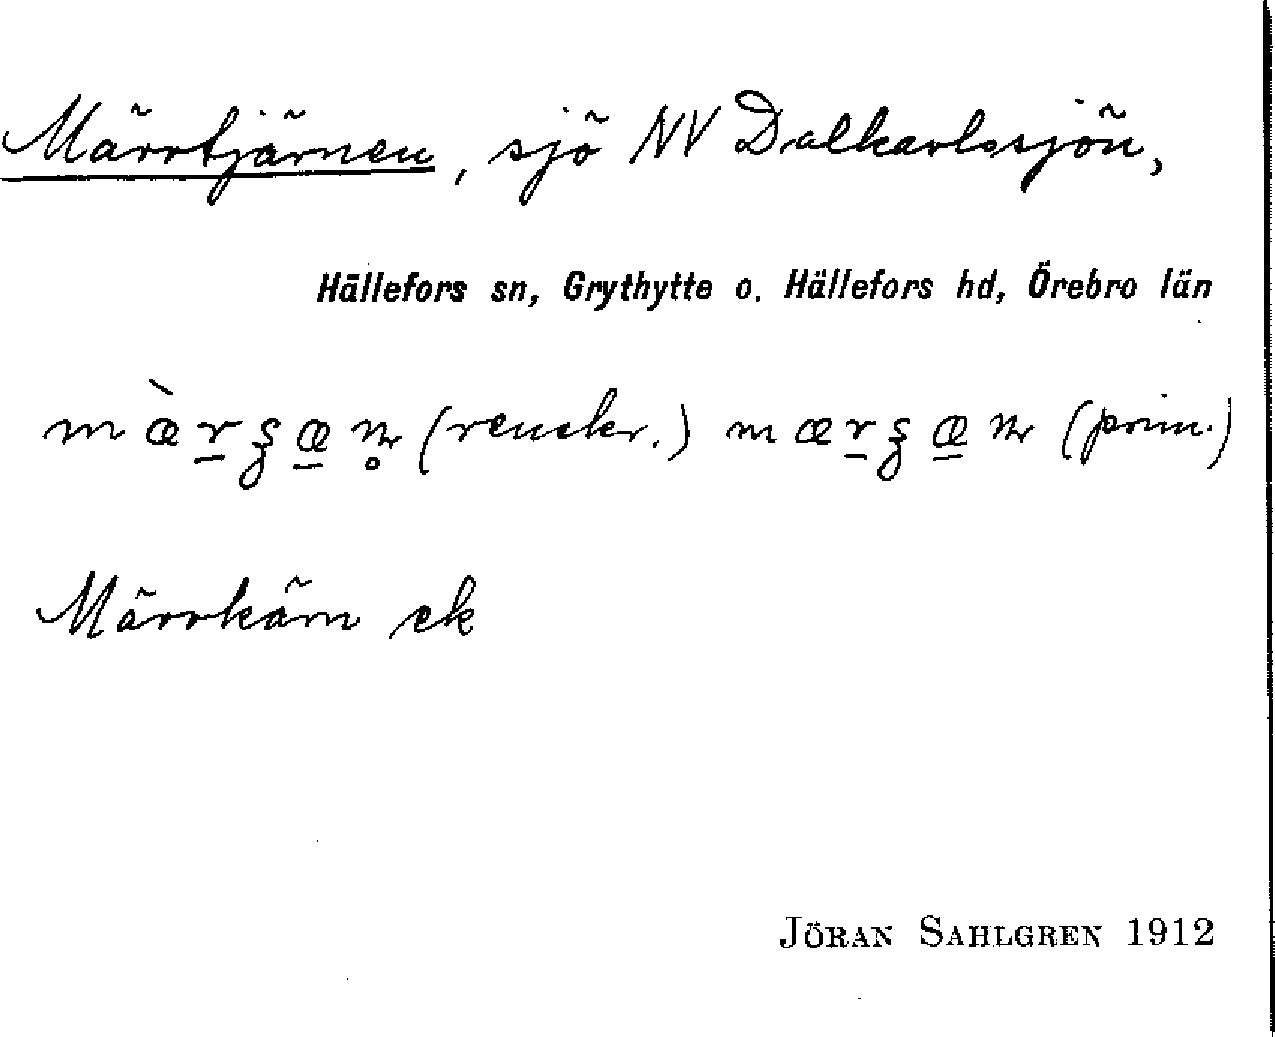 Märrtjärnen, sjö NV Dalkarlssjön,
Hällefors sn, Grythytte o. Hällefors hd, Örebro län
(renskr.) (prim.)
Märrkärn ek
JÖRAN SAHLGREN 1912